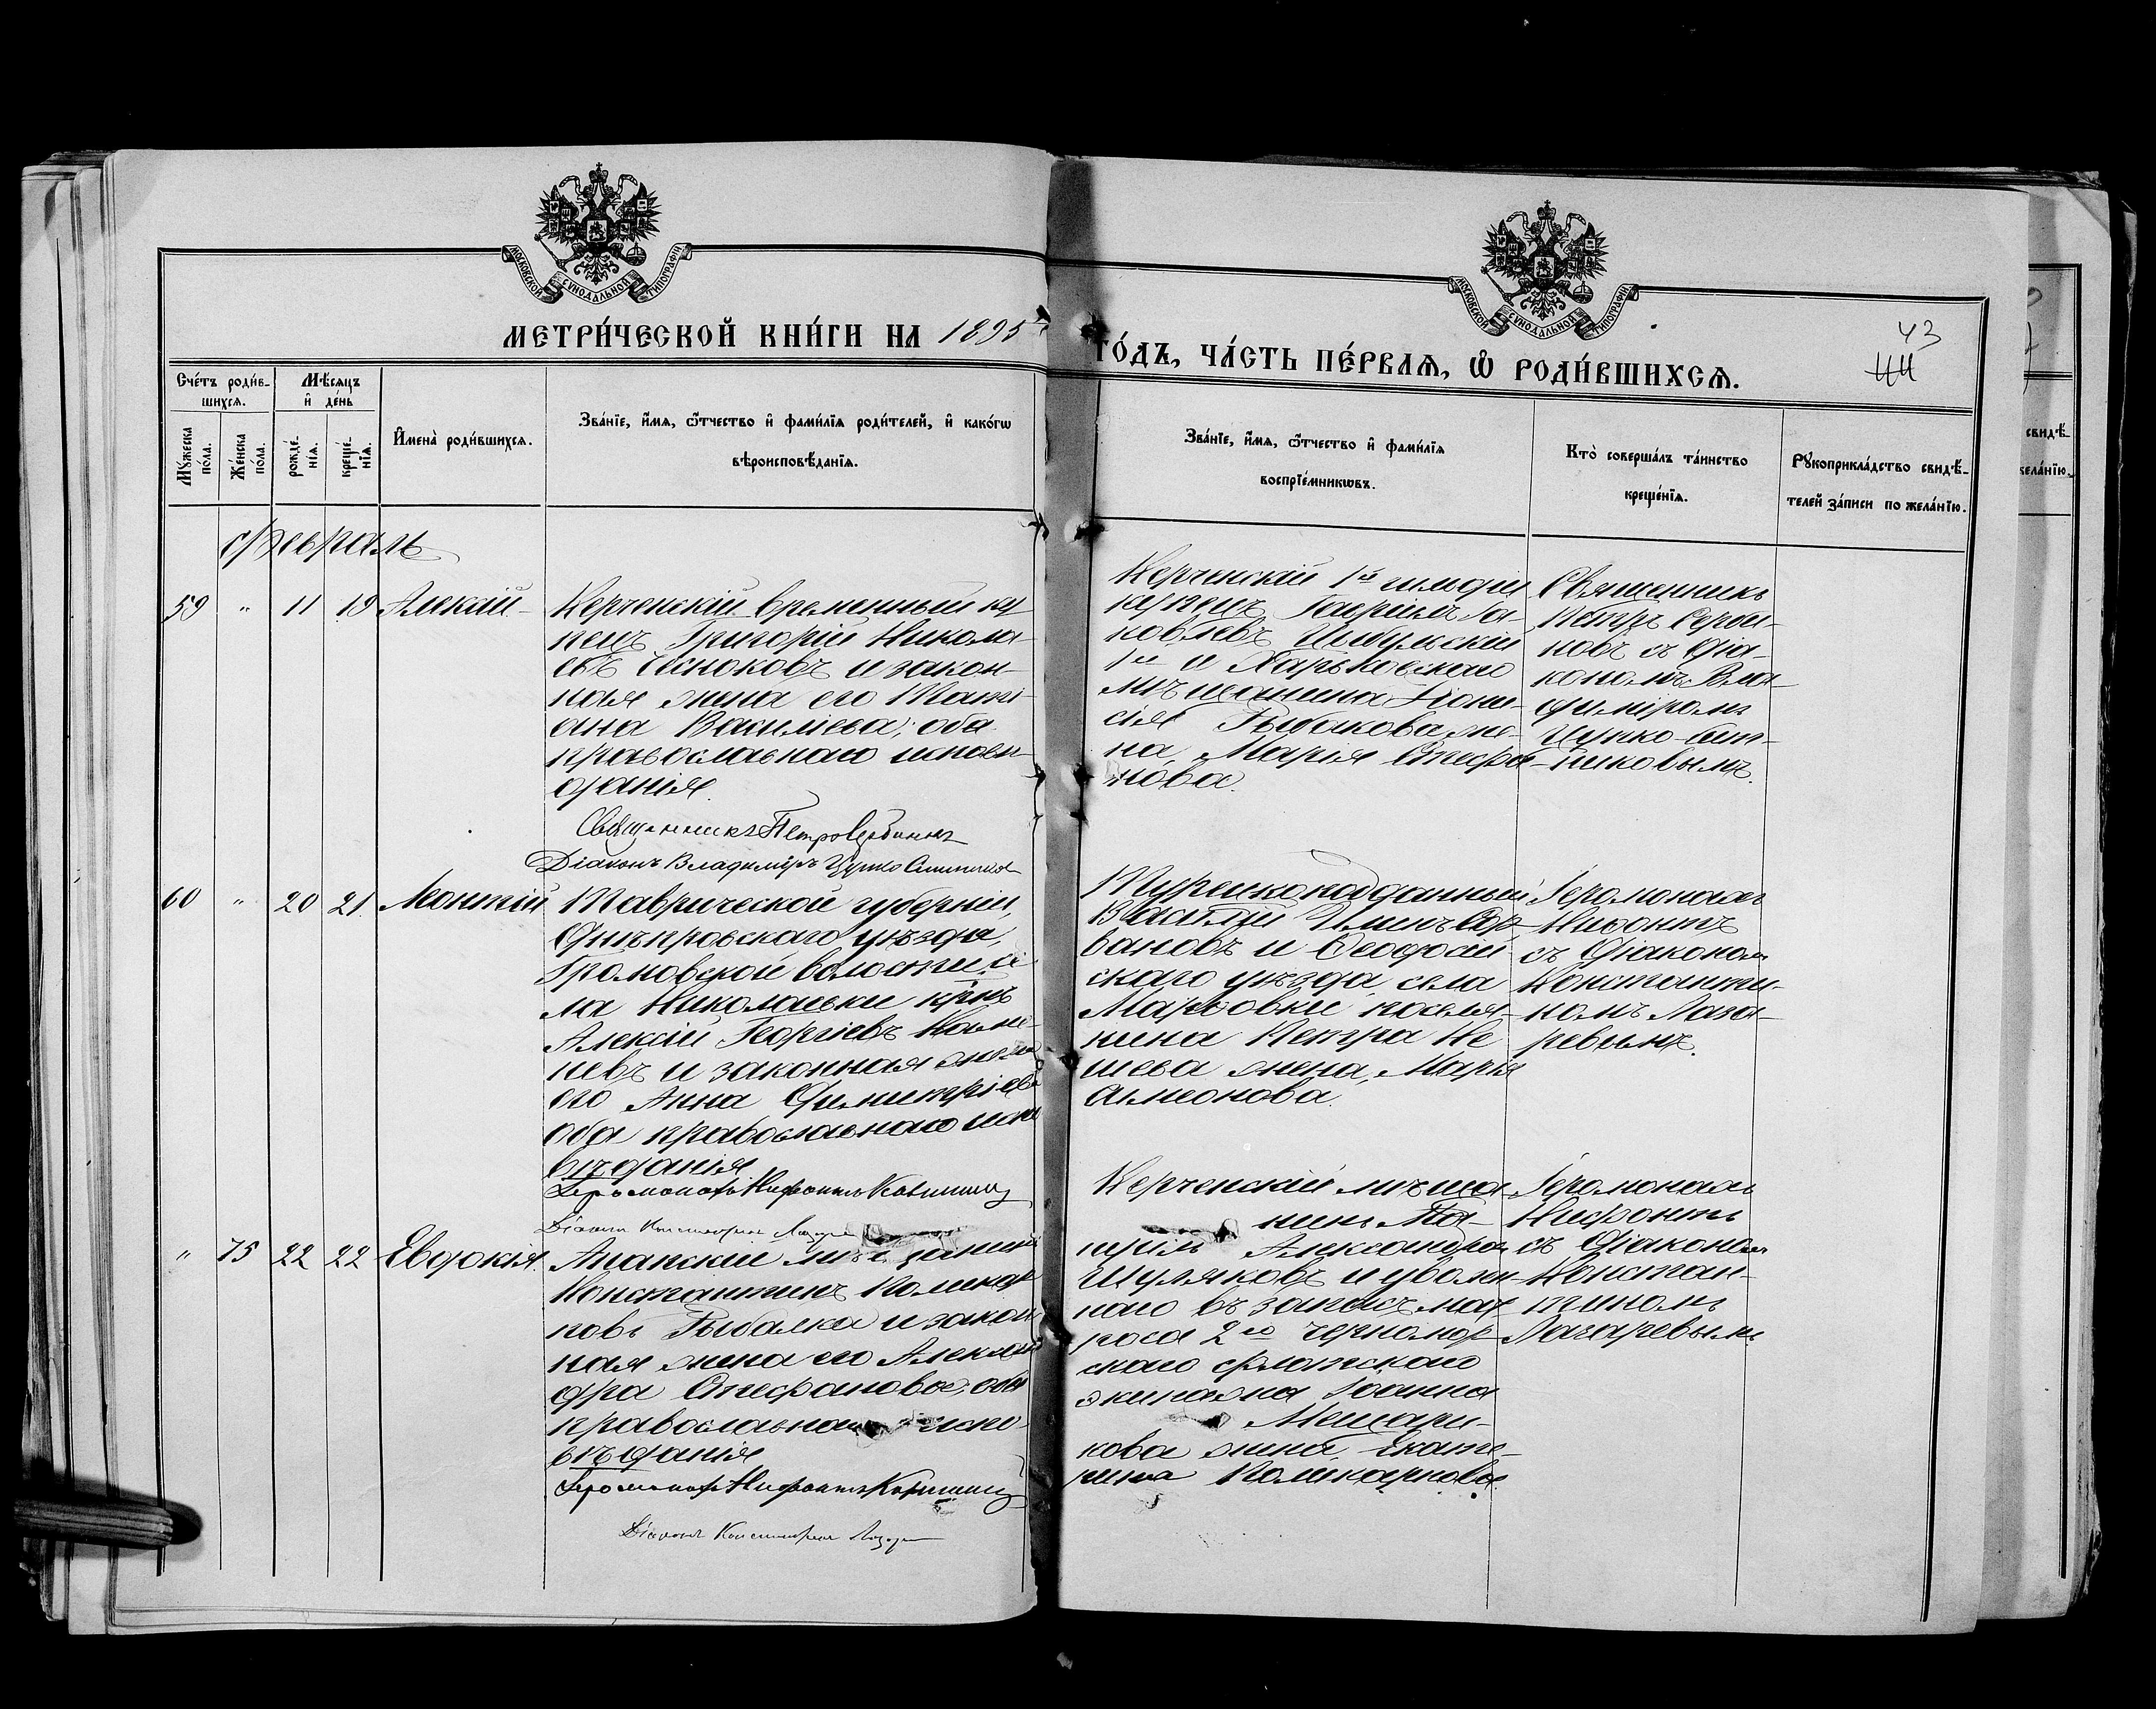 МОСКОВСКОЙ СѴНОДАЛЬНОЙ ТИПОГРАФІИ
МОСКОВСКОЙ СѴНОДАЛЬНОЙ ТИПОГРАФІИ
МЕТРИ́ЧЕСКОЙ КНИ́ГИ НА 1895
ГО́ДЪ, ЧА́СТЬ ПЕ́РВАѦ, Ѿ РОДИ́ВШИХСѦ.
43
44
Сче́тъ роди́в-
шихсѧ.
Мѣ́сѧцъ
и҆ де́нь
Мꙋ́жеска
пола.
Же́нска
по́ла.
рожде́-
нїѧ.
креще́-
нїѧ.
И҆мена̀ роди́вшихсѧ.
Зва́нїе, и҆́мѧ, ѻ҆́тчество и҆ фами́лїѧ роди́телей, и҆ како́гѡ
вѣроисповѣ́данїѧ.
Зва́нїе, и҆́мѧ, ѻ҆́тчество и҆ фами́лїѧ
воспрїе́мникѡвъ.
Кто̀ соверша́лъ та́инство
креще́нїѧ.
Рꙋкоприкла́дство свидѣ́-
телей за́писи по жела́нїю.
Февраль
59 " 11 19 Алексій
Керченскій временный ку
пецъ Григорій Никола-
евъ Чесноковъ и закон-
ная жена его Тати-
ана Василіева; оба
православнаго исповѣ-
данія.
Священникъ Петръ Сербиновъ
Діаконъ Владиміръ Цупко Ситниковъ
Керченскій 1й гильдіи
купецъ Гавріилъ Іа-
ковлевъ
и Харьковскаго
мѣщанина Діони-
сія Рыбакова же-
на, Марія Стефа-
нова.
Священникъ
Петръ Серби-
новъ съ діа-
кономъ Вла-
диміромъ
Цупко-Сит-
никовымъ.
60 " 20 21 Леонтій
Таврической губерніи,
Днѣпровскаго уѣзда,
Громовской волости, се
ла Николаевки крнъ
Алексій Георгіевъ
и законная жена
его Анна Димитріева
оба православнаго испо
вѣданія
Іеромонахъ Нифонтъ
Діаконъ Константинъ Лазаревъ
Турецкоподданный
Василій
вановъ и Ѳеодосій-
скаго уѣзда, села
Марѳовки поселя-
нина Петра Не
шева жена, Марія
Симеонова.
Іеромонахъ
Нифонтъ
съ діакономъ
Константи-
номъ Лаза-
ревымъ.
" 75 22 22 Евдокія.
Анапскій мѣщанинъ
Константинъ Поликар
повъ Рыбалка и закон
ная жена его Алексан
дра Стефановва; оба
православнаго испо-
вѣданія
Іеромонахъ Нифонтъ
Діаконъ Константинъ Лазаревъ
Керченскій мѣща-
нинъ
Александровъ
Шуляковъ и уволен-
наго въ запасъ мат
роса 2го черномор
скаго флотскаго
экипажа Іоанна
кова жена, Екате-
рина Поликарпова.
Іеромонахъ
Нифонтъ
съ діакономъ
Констан-
тиномъ
Лазаревымъ.
свидѣ́-
жела́нїю.